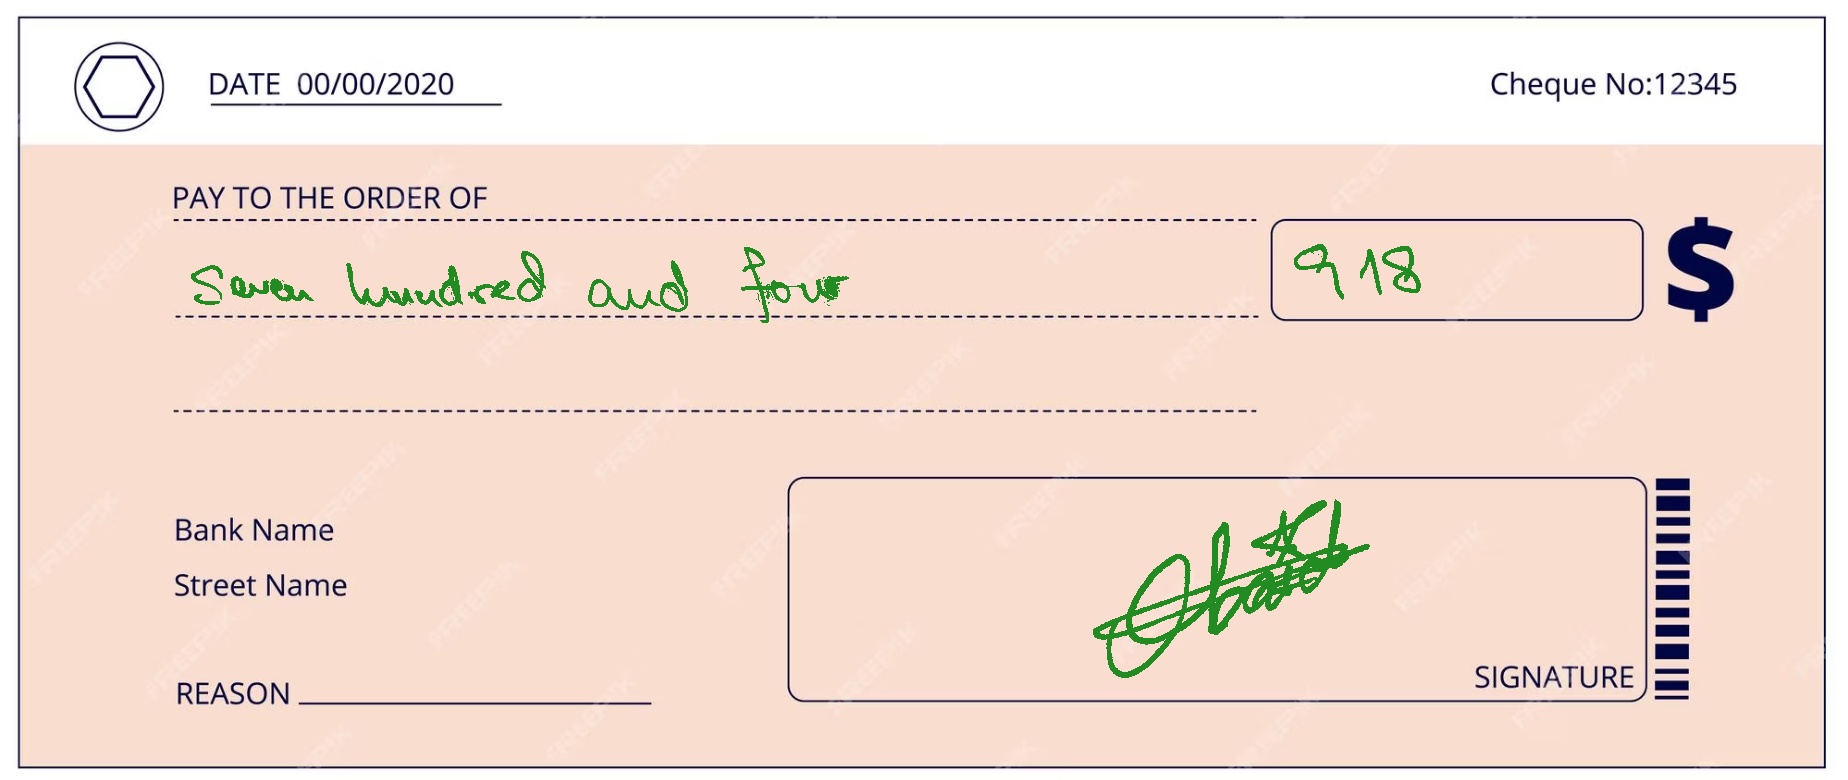 DATE 00/00/2020 Cheque No:12345
PAY TO THE ORDER OF
Seven hundred and four 918 $
Bank Name
Street Name
REASON
SIGNATURE